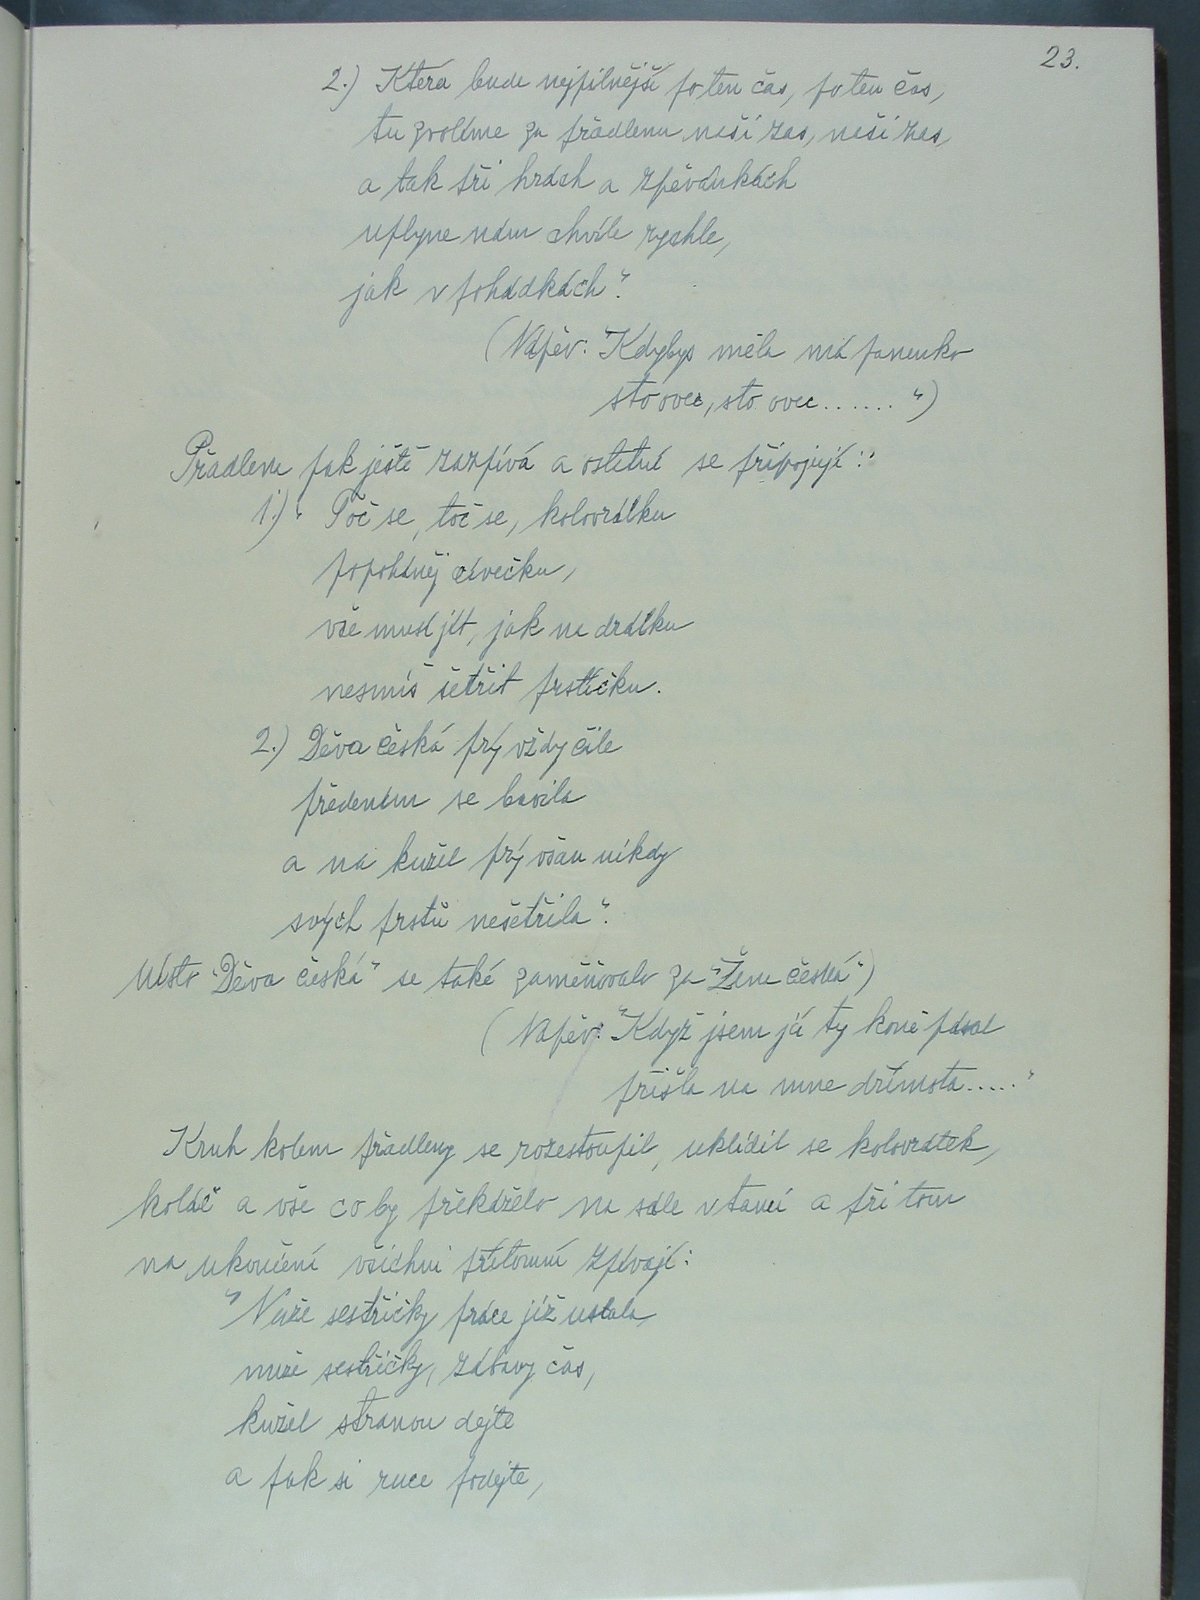 23.
2.) Která bude nejpilnější po ten čas, po ten čas,
tu zvolíme za přadlenu naší zas, naší zas,
a tak při hrách a zpěvánkách
uplyne nám chvíle rychle,
jak v pohádkách".
(Nápěv: "Kdybys měla má panenko
sto ovec, sto ovec....... ")
Přadlena pak ještě zazpívá a ostatní se připojují:
1.) "Toč se, toč se, kolovrátku
popoháněj cívečku,
vše musí jít, jak na drátku
nesmíš šetřit prstíčku.
2.) Děva česká prý vždy čile
předením se bavila
a na kužel prý však nikdy
svých prstů nešetřila".
Místo "Děva česká" se také zaměňovalo za "Žena česká")
(Nápěv: "Když jsem já ty koně pásal
přišla na mne dřímota....."
Kruh kolem přadleny se rozestoupil, uklidil se kolovrátek,
koláč a vše co by překáželo na sále v tanci a při tom
na ukončení všichni přítomní zpívají:
"Nuže sestřičky práce již ustala,
nuže sestřičky, zábavy čas,
kužel stranou dejte
a pak si ruce podejte,